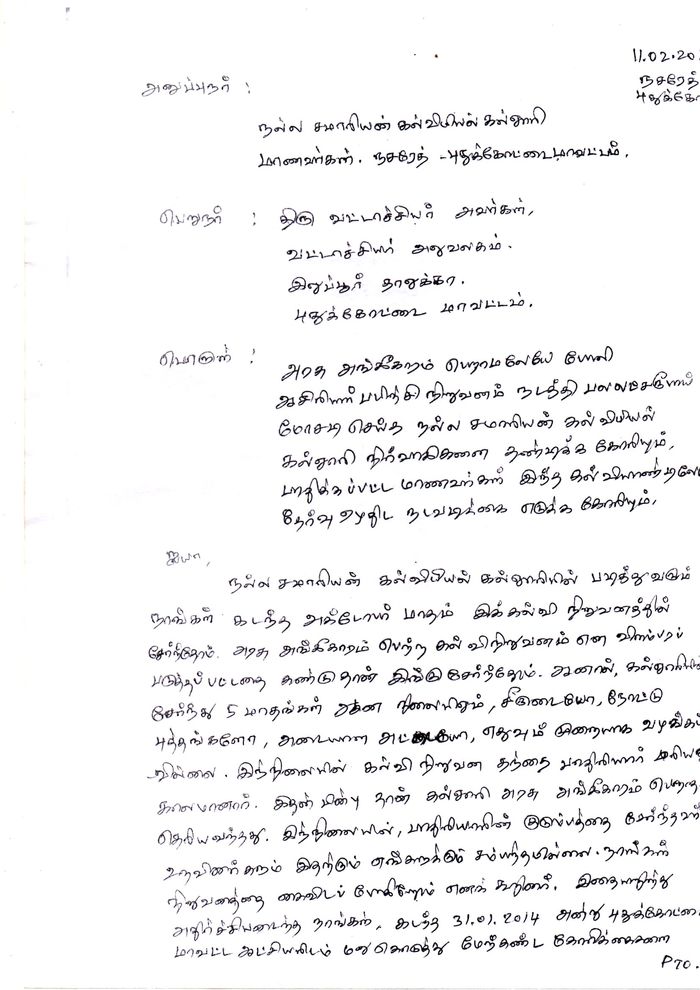 11.02.20
நசரேத்
புதுக்கோ
அனுப்புநர் :
நல்ல சமாரியன் கல்வியியல் கல்லூரி
மாணவர்கள். நசரேத் - புதுக்கோட்டை மாவட்டம்.
பெறுநர் : திரு வட்டாச்சியர் அவர்கள்,
வட்டாச்சியர் அலுவலகம்.
இலுப்பூர் தாலுக்கா.
புதுக்கோட்டை மாவட்டம்.
பொருள் : அரசு அங்கீகாரம் பெறாமலேயே போலி
ஆசிரியர் பயிற்சி நிறுவனம் நடத்தி பலலட்சரூபாய்
மோசடி செய்த நல்ல சமாரியன் கல்வியியல்
கல்லூரி நிர்வாகிகளை தண்டிக்க கோரியும்,
பாதிக்கப்பட்ட மாணவர்கள் இந்த கல்வியாண்டிலே
தேர்வு எழுதிட நடவடிக்கை எடுக்க கோரியும்.
ஐயா,
நல்ல சமாரியன் கல்வியியல் கல்லூரியில் படித்து வரும்
நாங்கள் கடந்த அக்டோபர் மாதம் இக்கல்வி நிறுவனத்தில்
சேர்ந்தோம். அரசு அங்கீகாரம் பெற்ற கல்விநிறுவனம் என விளம்பரப்
படுத்தப்பட்டதை கண்டுதான் இங்கு சேர்ந்தோம். ஆனால், கல்லூரியில்
சேர்ந்து 5 மாதங்கள் ஆன நிலையிலும், சீருடையோ, நோட்டு
புத்தங்களோ, அடையாள அட்டையோ, எதுவும் முறையாக வழங்கப்
வில்லை. இந்நிலையில் கல்வி நிறுவன தந்தை பாதிரியார்
காலமானார். இதன் பின்பு தான் கல்லூரி அரசு அங்கீகாரம் பெறாத
தெரியவந்தது. இந்நிலையில், பாதிரியாரின் குடும்பத்தை சேர்ந்தவர்
உறவினர்களும் இதற்கும் எங்களுக்கும் சம்பந்தமில்லை. நாங்கள்
நிறுவனத்தை கைவிடப் போகிறோம் எனக் கூறினர். இதையறிந்து
அதிர்ச்சியடைந்த நாங்கள், கடந்த 31.01.2014 அன்று புதுக்கோட்டை
மாவட்ட ஆட்சியரிடம் மனு கொடுத்து மேற்கண்ட கோரிக்கைகளை
PTO.